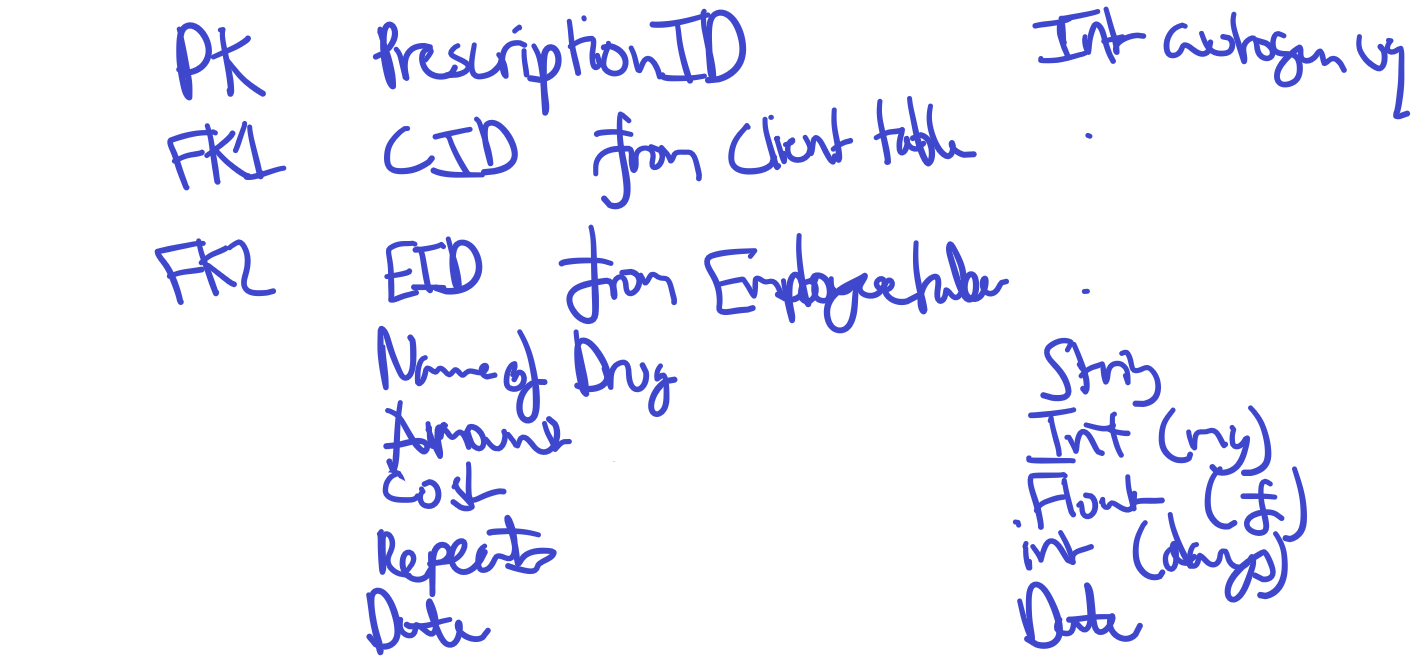 PK PrescriptionID Int
FK1 CID from Client table
FK2 EID from Employee table
Name of Drug String
Amount Int (mg)
Cost Float (£)
Repeats int (days)
Date Date